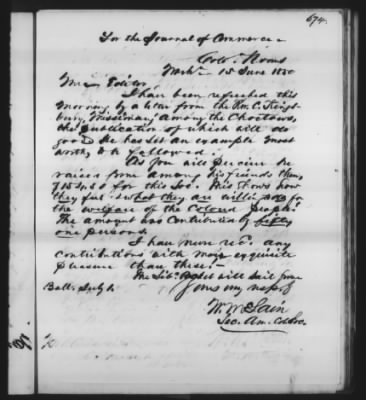 674.
For the Journal of Commerce
Colo. Rooms
Wash. 15 June 1850
Mr. Editor,
I have been refreshed this
morning by a letter from the Rev. C. Kings-
bury, Missionary among the Choctaws,
the publication of which will do
good. He has set an example most
worthy to be followed.
As you will perceive he
raised from among his friends there,
$ for this Soc. This shows how
they feel & what they are willing to do for
the welfare of the Colored people.
The amount was contributed by fifty
one persons.
I have never recd. any
contributions with more exquisite
pleasure than these.
The Lib. Packet will sail from
Balt. July 1.
Yours very resp.
W. McLain
Sec. Am. Col. Soc.